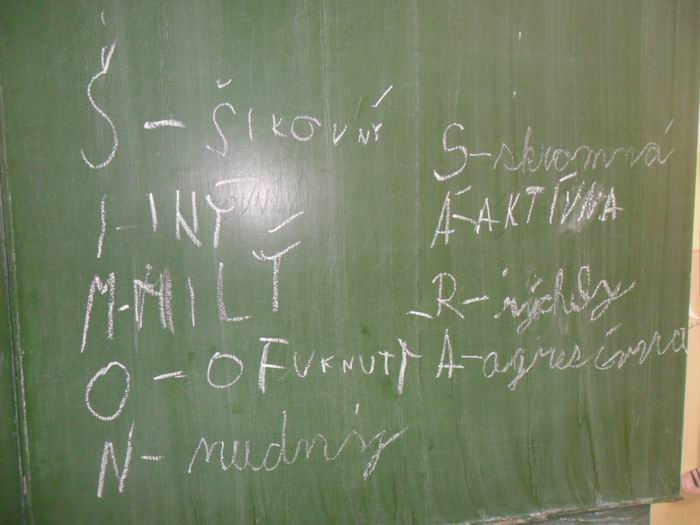 Š - ŠIKOVNÝ
I - INÝ
M - MILÝ
O - OFUKNUTÝ
N - nudný
S - skromná
Á - AKTÍVNA
R - rýchly
A - agresívna